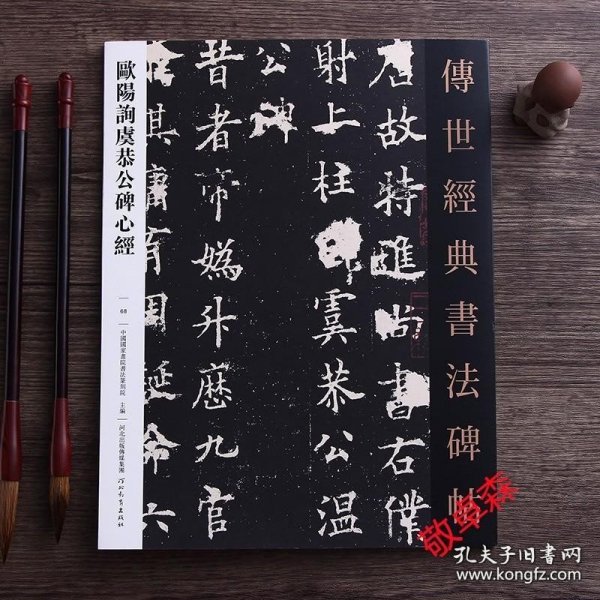 傳世經典書法碑帖
唐故特進尚書右僕
射上柱國虞恭公溫
公碑
昔者帝媯升歷九官
命六
歐陽詢虞恭公碑心經
68
中國國家畫院書法篆刻院 主編
河北出版傳媒集團
河北教育出版社
孔夫子旧書网
www.kongfz.com